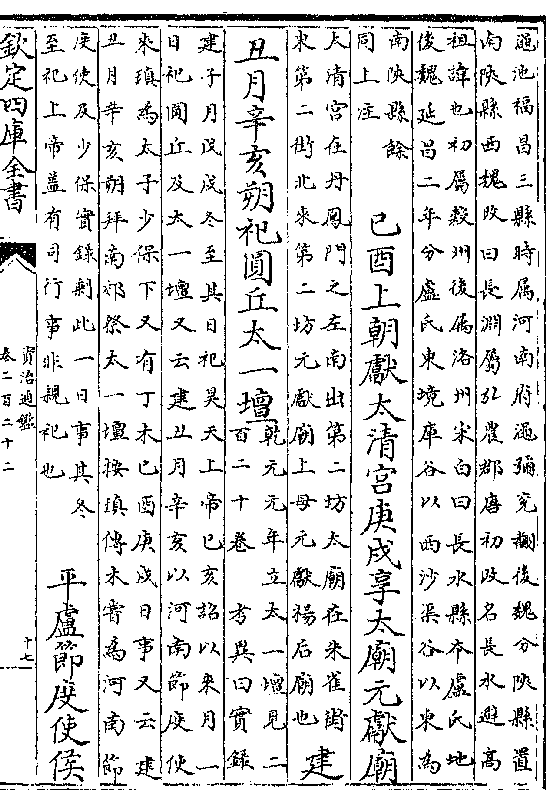 澠池福昌三縣時屬河南府澠彌兖翻後魏分陜縣置
南陜縣西魏改曰長淵屬弘農郡唐初改名長水避高
祖諱也初屬穀州後屬洛州宋白曰長水縣本盧氏地
後魏延昌二年分盧氏東境庫谷以西沙渠谷以東為
南陜縣餘
同上注
己酉上朝獻太清宫庚戌享太廟元獻廟
大清宫在丹鳳門之左南出第二坊太廟在朱雀街
東第二街北來第二坊元獻廟上母元獻楊后廟也
建
丑月辛亥朔祀圓丘太一壇
乾元元年立太一壇見二
百二十卷 考異曰實錄
建子月戊戌冬至其日祀昊天上帝己亥詔以來月一
日祀圓丘及太一壇又云建丑月辛亥以河南節度使
來瑱為太子少保下又有丁未己酉庚戌日事又云建
丑月辛亥朔拜南郊祭太一壇按瑱傳未嘗為河南節
度使及少保實錄剩此一日事其冬
至祀上帝蓋有司行事非親祀也
平盧節度使侯
欽定四庫全書
資治通鑑
卷二百二十二
十七